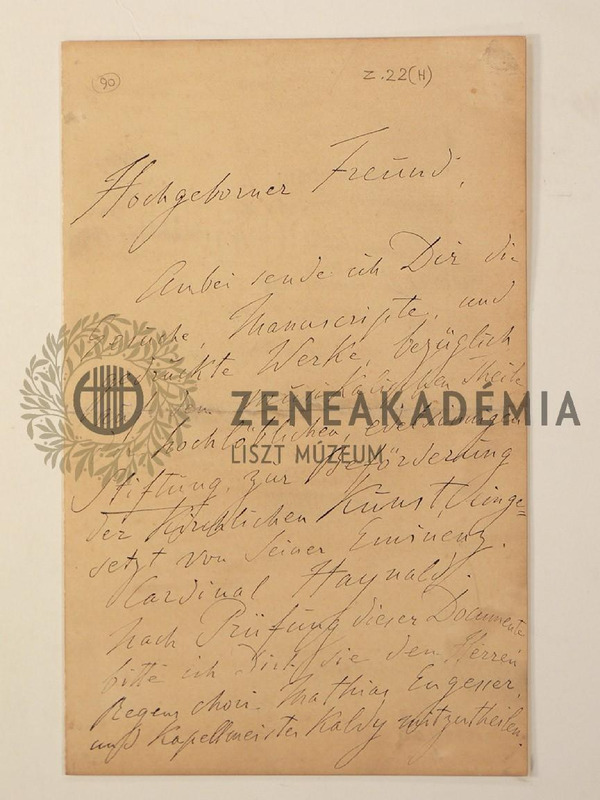 90
Z.22(H)
Hochgeborner Freund,
Anbei sende ich Dir die
Gesuche, Manuscripte, und
gedruckte Werke, bezüglich
dem musikalischen Theile
hochlöblichen,
ZENEAKADÉMIA
LISZT MÚZEUM
Stiftung, zur Beförderung
der Kirchlichen Kunst, einge-
setzt von Seiner Eminenz.
Cardinal Haynald.
Nach Prüfung dieser Documente
bitte ich Dich sie den Herren
Regens chori Mathias Engesser,
und Kapellmeister Kaldy mitzutheilen.